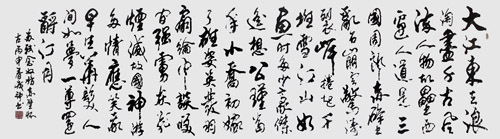 大江東去浪
淘盡千古風
流人物故壘
西邊人道是三
國周郎赤壁
亂石崩雲驚濤
裂岸捲起千
堆雪江山如
畫一時多少豪
傑遙想公瑾當
年小喬初嫁
了雄姿英發羽
扇綸巾談笑間
強虜灰飛
煙滅故國神游
多情應笑我
早生華髮人
間如夢一尊還
酹江月
蘇軾念奴嬌赤壁懷
古丙申春書